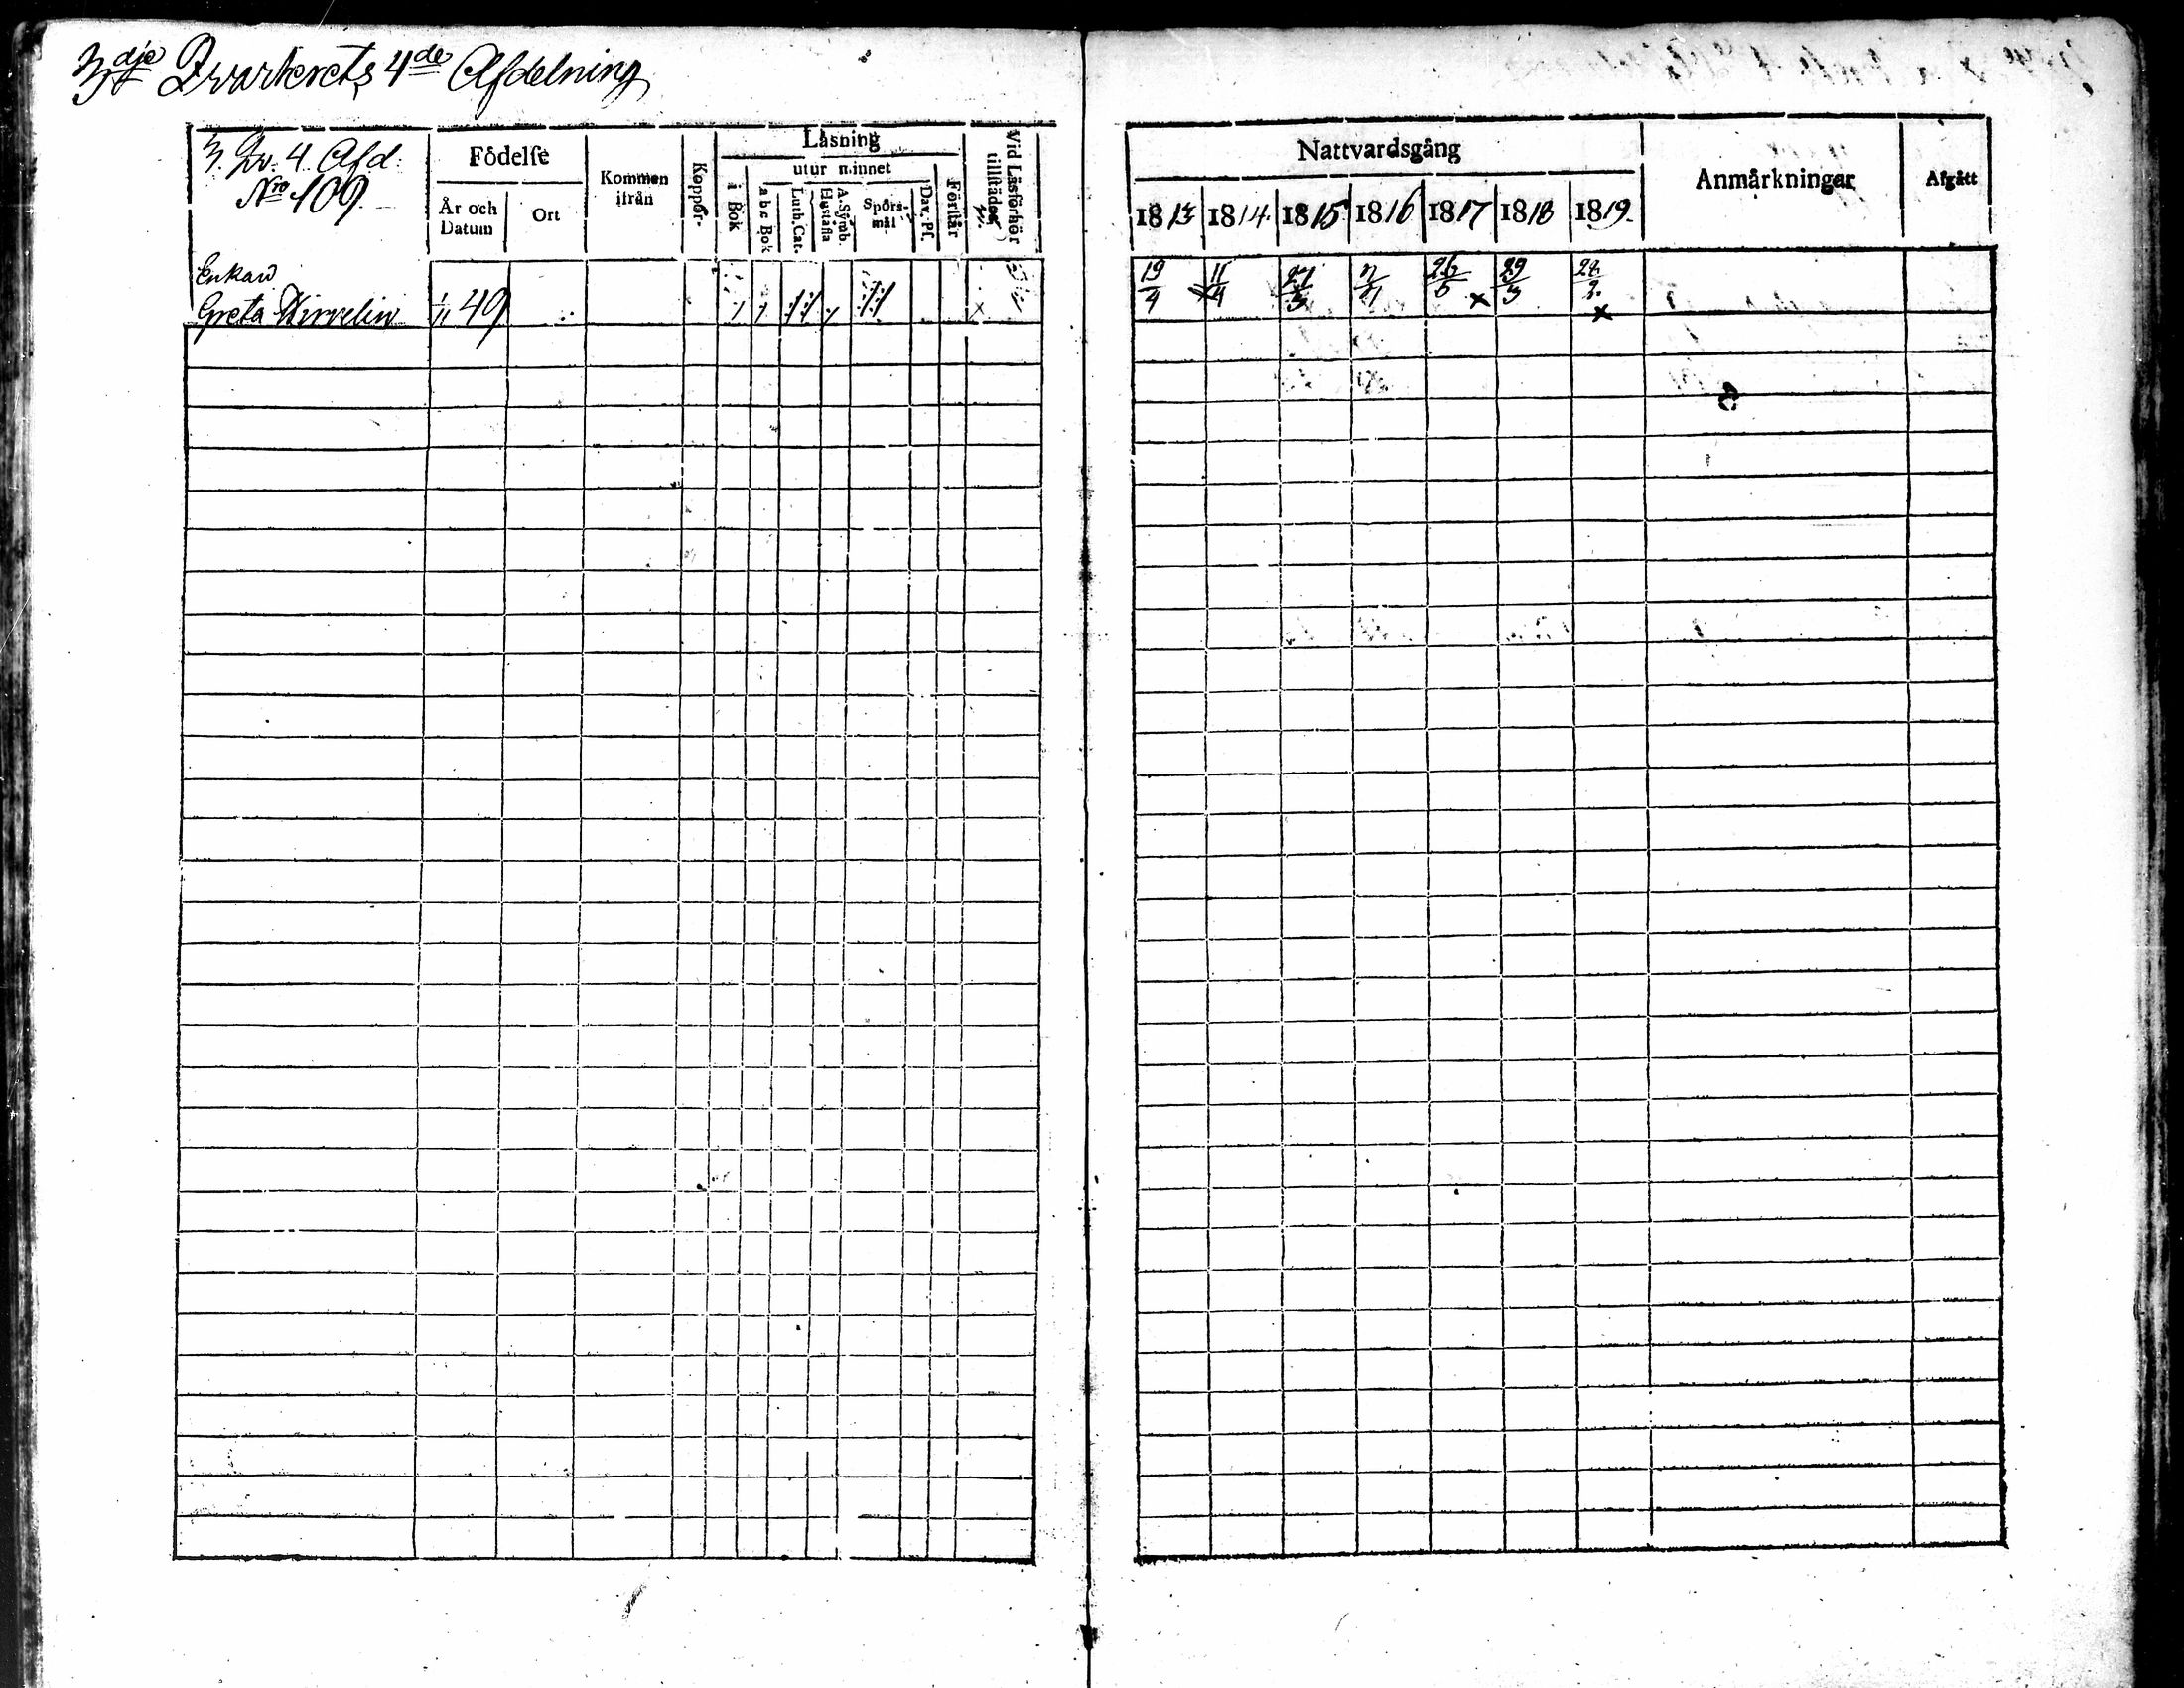 3dje Qvarterets 4de Afdelning
3. Qv. 4. Afd.
Nro 109.
Födelse
År och Datum
Ort
Kommen ifrån
Koppor
Läsning
i Bok
utur minnet
a b c Bok
Luth. Cat.
Hustafla
A. Symb.
Spörsmål
Dav. Ps.
Förstår
Vid Läsförhör tillstädes
Enkan
Greta 1/11 49
Nattvardsgång
1813 1814. 1815 1816 1817 1818 1819.
Anmärkningar
Afgått
19/4 11/4 27/3 26/5 29/3 28/2